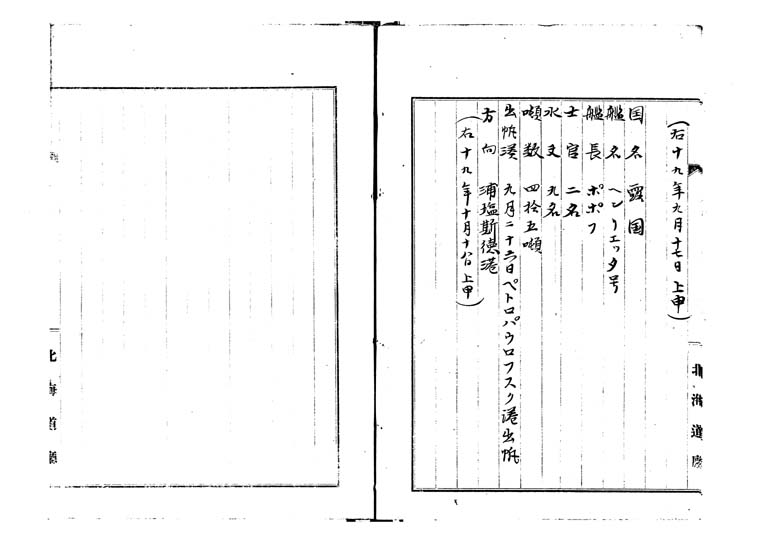 （右十九年九月十七日上申）
国名　露国
艦名　ヘンリエッタ号
艦長　ポポフ
士官　二名
水夫　九名
噸数　四拾五噸
出帆港　九月二十二日ペトロパウロフスク港出帆
方向　浦塩斯徳港
（右十九年十月十八日上申）
北海道廳
北海道廳